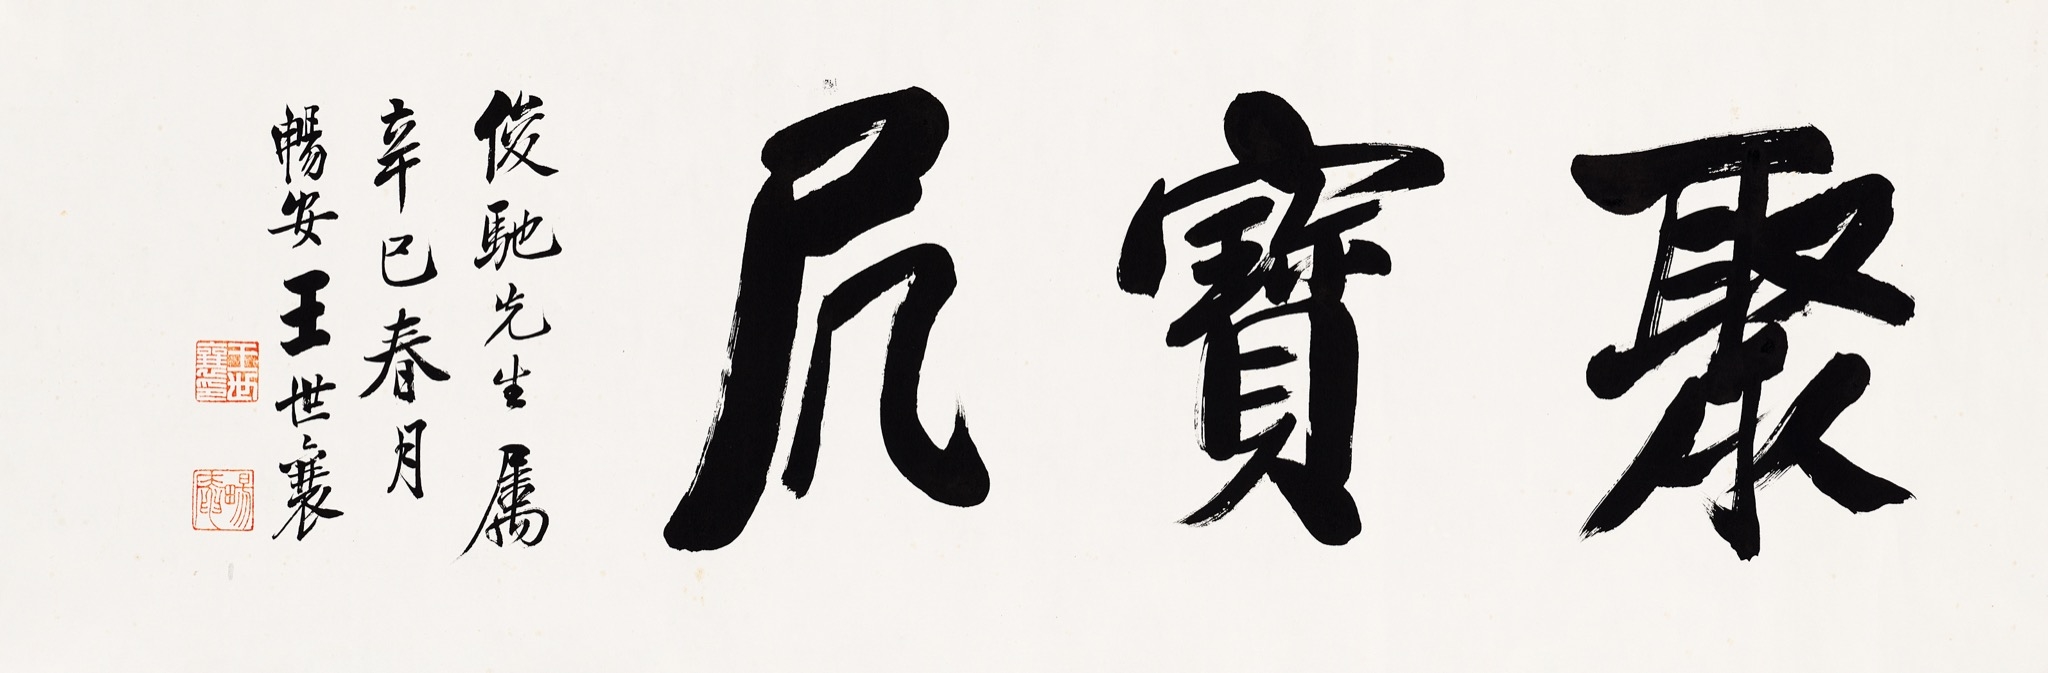 聚寶凥
俊馳先生属
辛巳春月
暢安王世襄
王世襄印
暢安